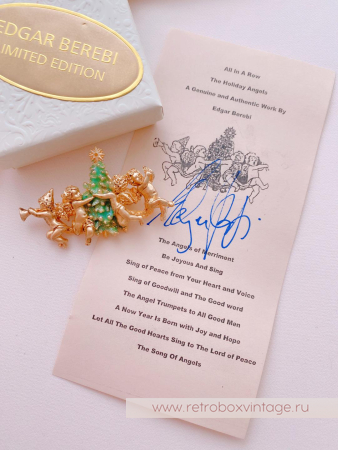 EDGAR BEREBI
LIMITED EDITION
All In A Row
The Holiday Angels
A Genuine and Authentic Work By
Edgar Berebi
The Angels of Merriment
Be Joyous And Sing
Sing of Peace from Your Heart and Voice
Sing of Goodwill and The Good word
The Angel Trumpets to All Good Men
A New Year Is Born with Joy and Hope
Let All The Good Hearts Sing to The Lord of Peace
The Song Of Angels
www.retroboxvintage.ru